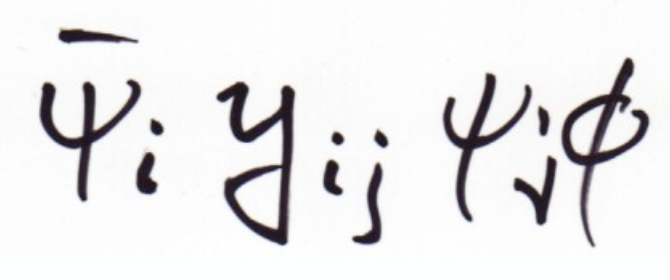 ψ̄ᵢ yᵢⱼ ψⱼ φ